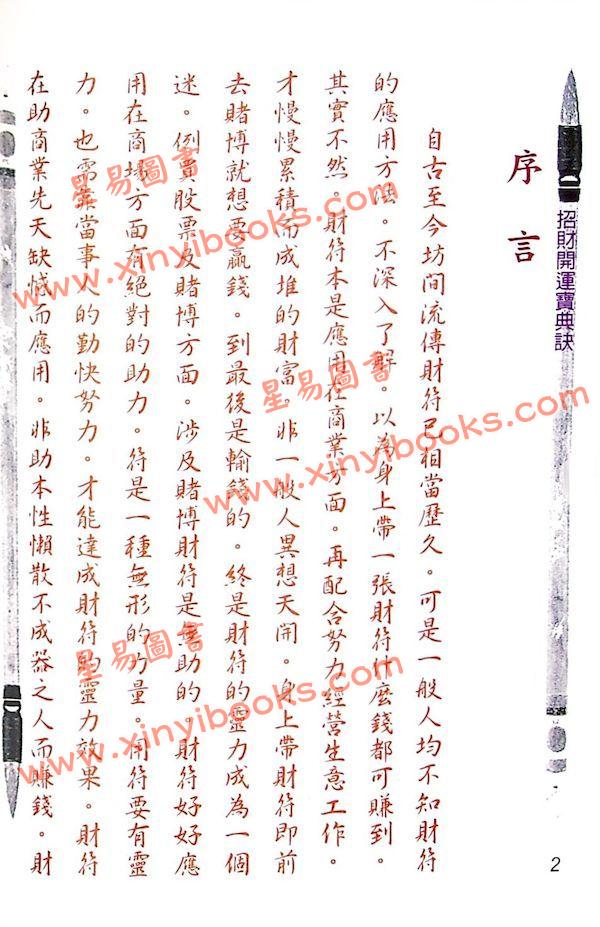 招財開運寶典訣
序言
自古至今坊間流傳財符已相當歷久。可是一般人均不知財符
的應用方法。不深入了解。以為身上帶一張財符什麼錢都可賺到。
其實不然。財符本是應用在商業方面。再配合努力經營生意工作。
才慢慢累積而成堆的財富。非一般人異想天開。身上帶財符即前
去賭博就想要贏錢。到最後是輸錢的。終是財符的靈力成為一個
迷。例賣股票及賭博方面。涉及賭博財符是無助的。財符好好應
用在商場方面有絕對的助力。符是一種無形的力量。用符要有靈
力。也需靠當事人的勤快努力。才能達成財符的靈力效果。財符
在助商業先天缺憾而應用。非助本性懶散不成器之人而賺錢。財
2
星易圖書
www.xinyibooks.com
星易圖書
www.xinyibooks.com
星易圖書
www.xinyibooks.com